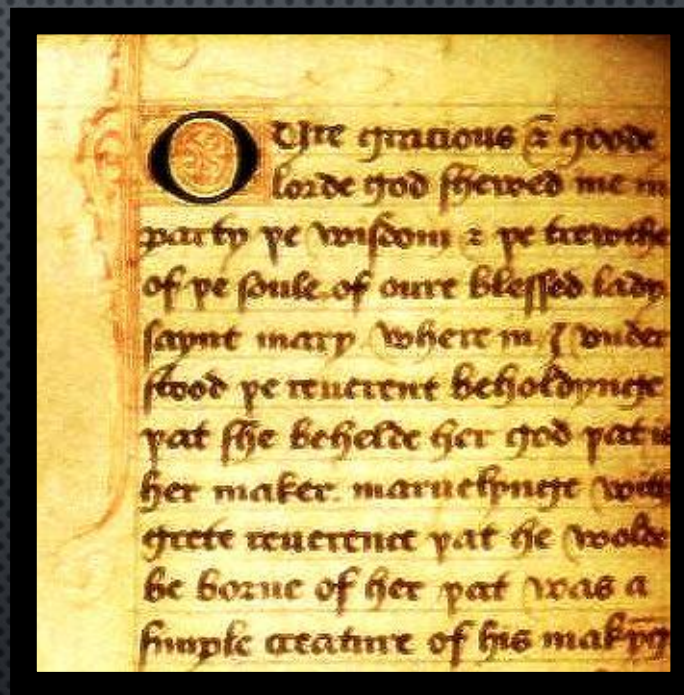 OUre gracious & goode
lorde god shewed me in
party þe wisdom & þe trewthe
of þe soule of oure blessed lady
saynt mary where in I vnder
stood þe reuerent beholdynge
þat she behelde her god þat is
her maker. maruelynge with
grete reuerence þat he wolde
be borne of her þat was a
simple creature of his makyng